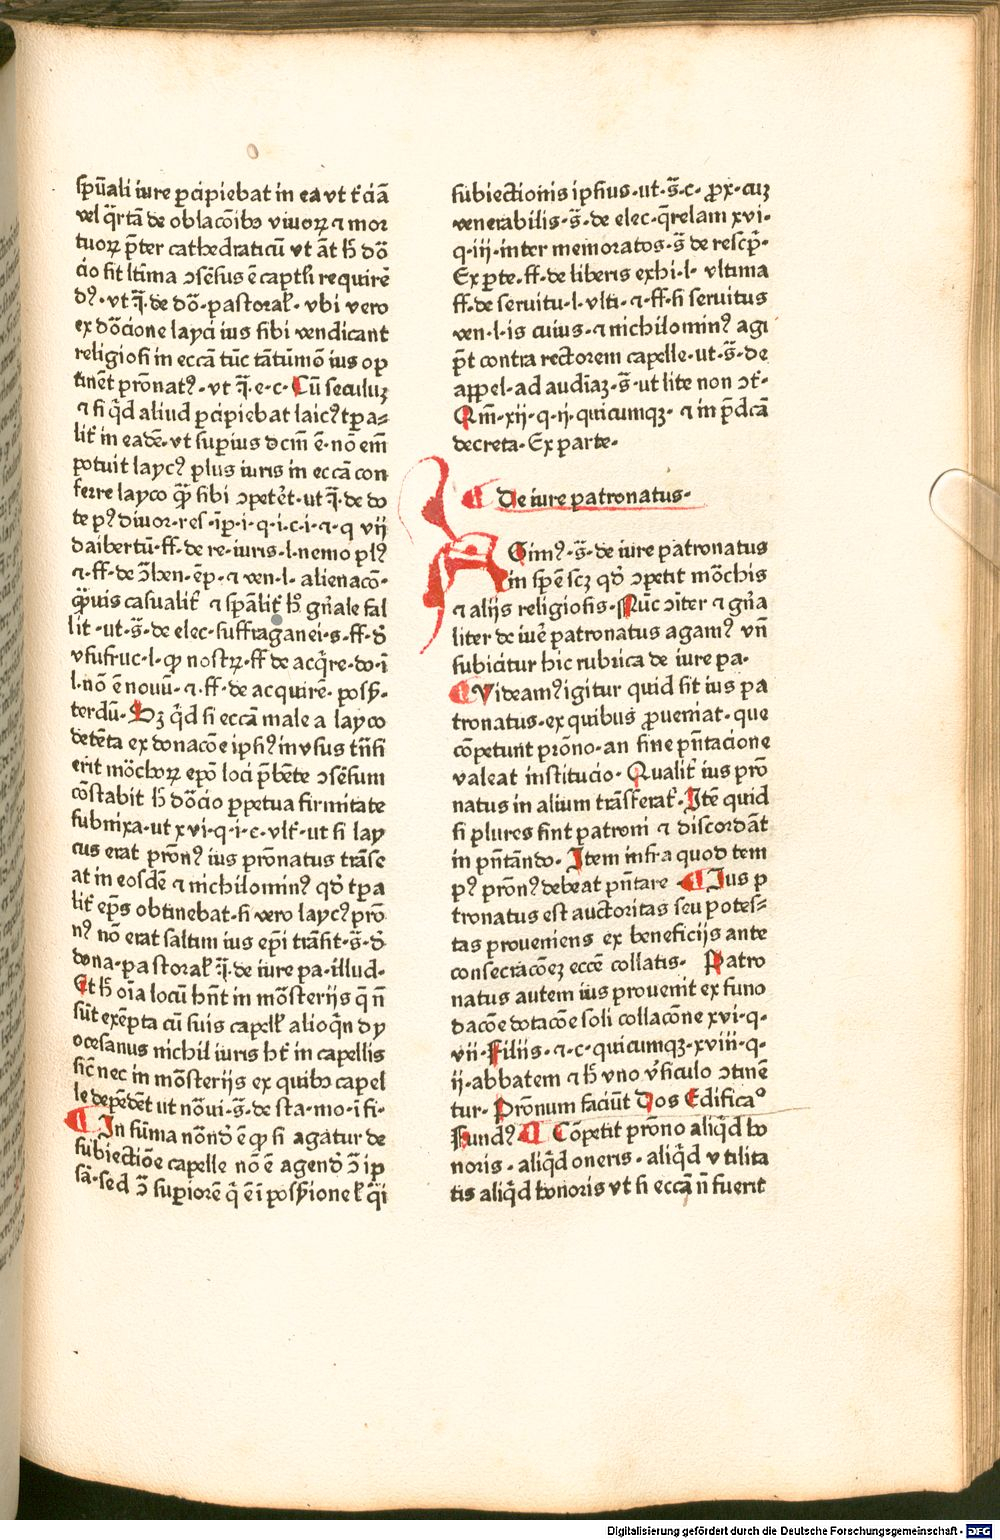 spūali iure ꝑcipiebat in ea vt t̄ciā
vel q̄rtā de oblacōibꝰ viuoꝝ ⁊ mor
tuoꝝ p̄ter cathedraticū vt āt h̄ dō
cio sit ltima ↄsēsus ē captl̄i requirē
dꝰ · vt ī̄ · de dō · pastoral̄ · vbi vero
ex dōcione layci ius sibi vendicant
religiosi in eccā tūc tātūmō ius op
tinēt pron̄atꝰ · vt ī̄ · e · c · Cū seculuꝫ
⁊ si q̄d aliud ꝑcipiebat laicꝰ tꝑa⸗
lit̄ in eadē · vt superius dcm̄ ē · nō em̄
potuit laycꝰ plus iuris in eccā con
ferre layco q̄ꝫ sibi ↄpetēt · ut ī̄ · de do
te pꝰ diuor · res · ī̄ꝑ · i · q · i · c · i · ⁊ · q vij
daibertū · ff · de re · iuris · l · nemo plꝰ
⁊ · ff · de ↄ̄ben · ēp · ⁊ ven · l · alienacō ·
q̄ꝫuis casualit̄ ⁊ spālit̄ h̄ꝰ gn̄ale fal
lit · ut · s̄ · de elec · suffraganei · s · ff · d̄
vsufruc · l · ꝙ nostꝝ · ff de acq̄re · do · ī
l · nō ē nouū · ⁊ ff · de acquirē · poss̄ ·
terdū · Sꝫ q̄d si eccā male a layco
detēta ex donacōe ipsiꝰ in vsus tn̄si
erit mōchoꝝ epō loci p̄bēte ↄsēsum
cōstabit h̄ dōcio ꝑpetua firmitate
subnixa · ut xvi · q · i · c · vlt̄ · ut si lay
cus erat pron̄ꝰ ius pron̄atus trāse
at in eosdē ⁊ nichilominꝰ qd̄ tꝑa
lit̄ ep̄s obtinebat · si vero laycꝰ prō
nꝰ nō erat saltim ius ep̄i trāsit · s̄ · d̄
dona · pastoral̄ · ī̄ · de iure pa · illud ·
Et h̄ oīa locū hn̄t in mōsterijs q̄ n̄
sūt exēpta cū suis capell̄ alioqn̄ dy
ocesanus nichil iuris ht̄ in capellis
sic̄ nec in mōsterijs ex quibꝰ capel
le depēdēt ut nōui · s̄ · de sta · mo · ī fi ·
¶ In sūma nōnd̄ ē ꝙ si agatur de
subiectiōe capelle nō ē agend̄ ↄ̄ ip
sā · sed ↄ̄ superiorē q̄ ē ī possionel̄ q̄i
subiectionis ipsius · ut · s̄ · c · ꝓx · cuꝫ
venerabilis · s̄ · de elec · q̄relam xvi ·
q · iii · inter memoratos · s̄ de resc̄p ·
Ex ꝑte · ff · de liberis exhi · l · vltima
ff · de seruitu · l · vlti · ⁊ · ff · si seruitus
ven · l · is cuius · ⁊ nichilominꝰ agi
p̄t contra rectorem capelle · ut · s̄ · de
appel · ad audiāꝫ · s̄ · ut lite non ↄt̄ ·
Qm̄ · xij · q · ij · quicumqꝫ · ⁊ in p̄dcā
decreta · Ex parte ·
¶ De iure patronatus ·
A Gimꝰ · s̄ · de iure patronatus
in spē scꝫ qd̄ ↄpetit mōchis
⁊ alijs religiosis · Nūc ↄīter ⁊ gn̄a
liter de iuē patronatus agamꝰ vn̄
subicitur hic rubrica de iure pa ·
¶ Videamꝰ igitur quid sit ius pa
tronatus · ex quibus ꝓueniat · que
cōpetunt prōno · an sine pn̄tacione
valeat institucio · Qualit̄ ius prō
natus in alium trāsferat̄ · Itē quid
si plures sint patroni ⁊ discordāt
in pn̄tādo · Item infra quod tem
pꝰ prōnꝰ debeat pn̄tare · ¶ Ius p
tronatus est auctoritas seu potes⸗
tas proueniens ex beneficijs ante
consecracōeꝫ eccē collatis · Patro
natus autem ius prouenit ex funo
dacōe dotacōe soli collacōne xvi · q ·
vii · Filiis · ⁊ · c · quicumqꝫ · xviii · q ·
ij · abbatem ⁊ h̄ vno v̄siculo ↄtinē
tur · Prōnum faciūt dos Edificaᵒ
Fundꝰ ¶ Cōpetit prōno aliq̄d ho
noris · aliq̄d oneris · aliq̄d vtilita
tis aliq̄d honoris vt si eccā n̄ fuerit
Digitalisierung gefördert durch die Deutsche Forschungsgemeinschaft - DFG